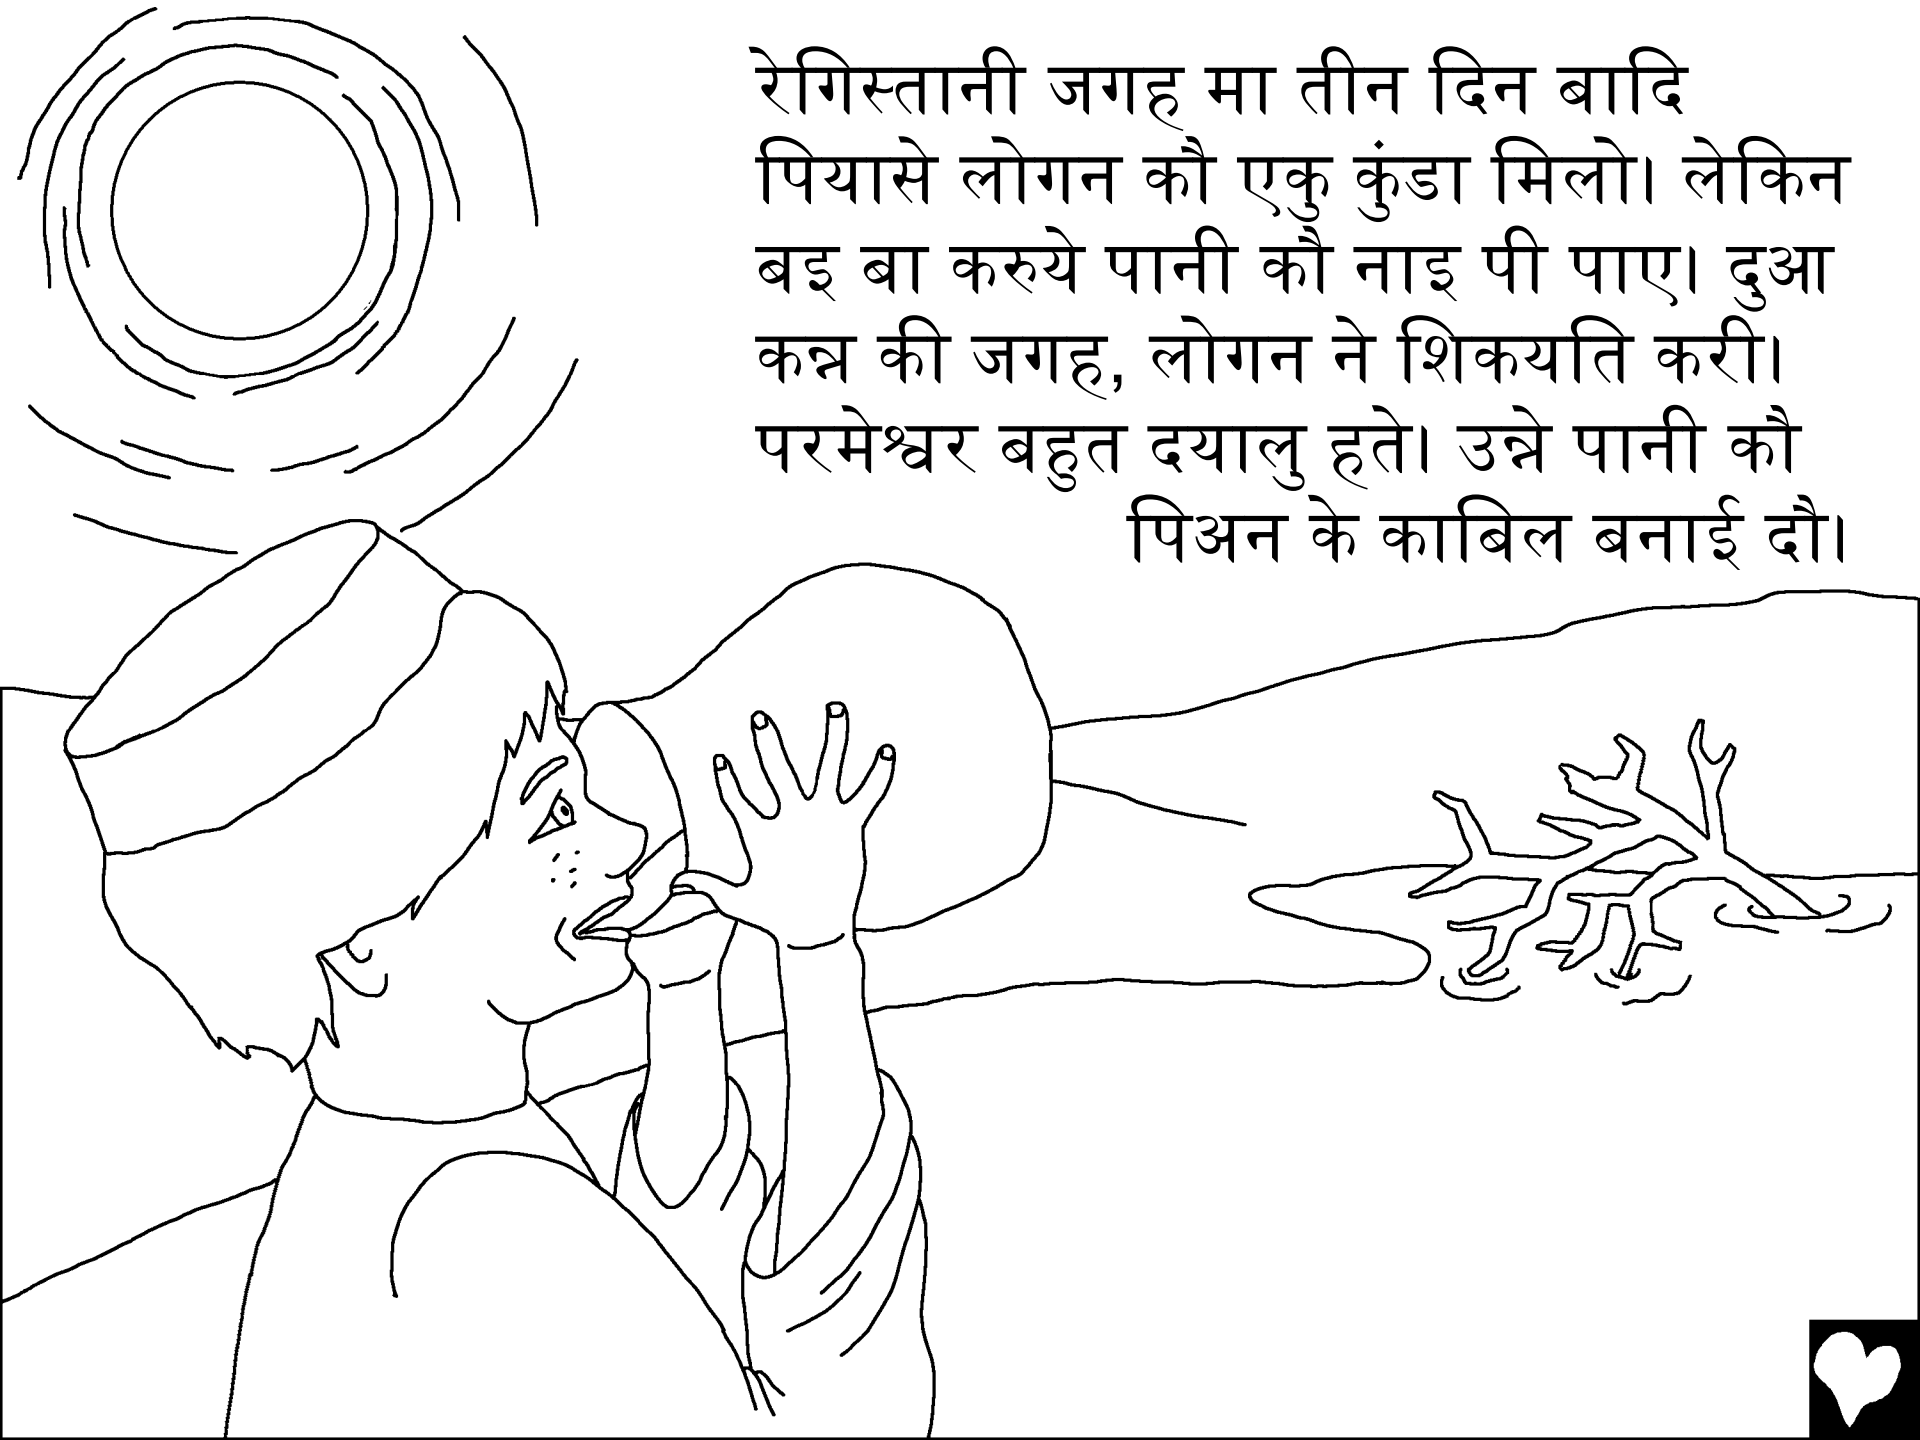 रेगिस्तानी जगह मा तीन दिन बादि
पियासे लोगन कौ एकु कुंडा मिलो। लेकिन
बइ बा करुये पानी कौ नाइ पी पाए। दुआ
कन्न की जगह, लोगन ने शिकयति करी।
परमेश्वर बहुत दयालु हते। उन्ने पानी कौ
पिअन के काबिल बनाई दौ।